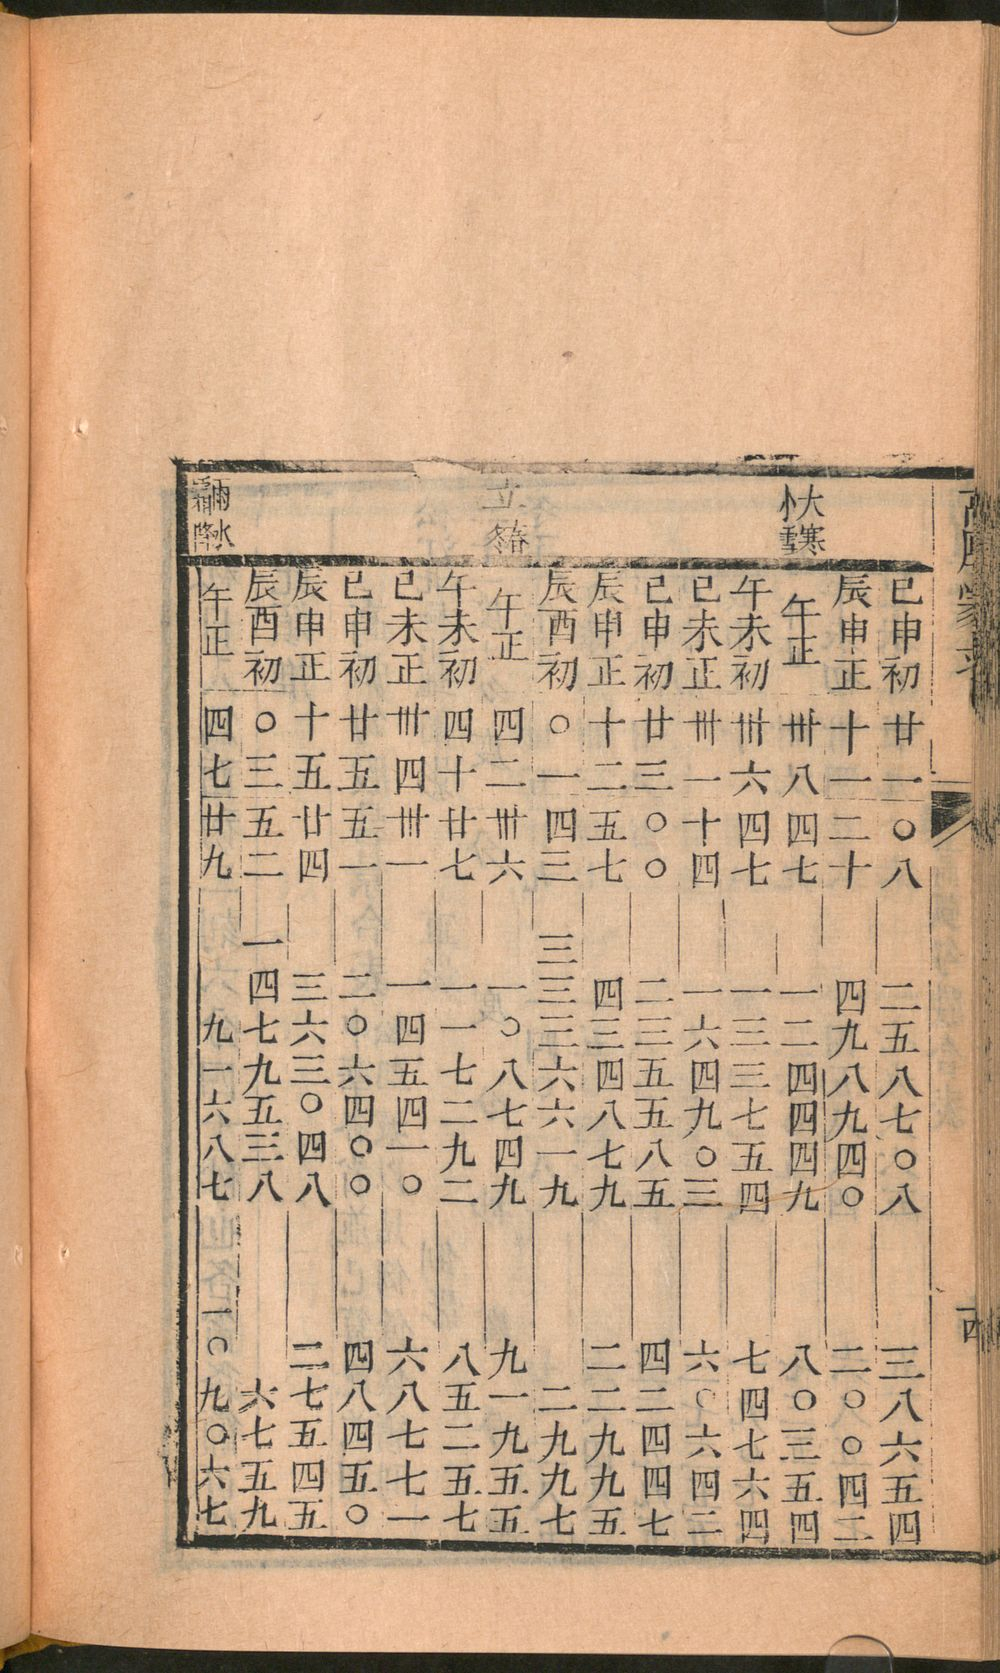 高厚蒙求
巳申初 廿一〇八 二五八七〇八 三八六五四
辰申正 十一二十 四九八九四〇 二〇〇四二
大寒
小雪
午正 卅八四七 一二四四四九 八〇三五四
午未初 卅六四七 一三三七五四 七四七六四
巳未正 卅一十四 一六四九〇三 六〇六四二
巳申初 廿三〇〇 二三五五八五 四二四四七
辰申正 十二五七 四三四八七九 二二九九五
辰酉初 〇一四三 三三三六六一九 二九九七
立春冬
午正 四二卅六 一〇八七四九 九一九五五
午未初 四十廿七 一一七二九二 八五二五七
巳未正 卅四卅一 一四五四一〇 六八七七一
巳申初 廿五五一 二〇六四〇〇 四八四五〇
辰申正 十五廿四 三六三〇四八 二七五四五
辰酉初 〇三五二 一四七九五三八 六七五九
雨水
霜降
午正 四七廿九 九一六八七 一〇九〇六七